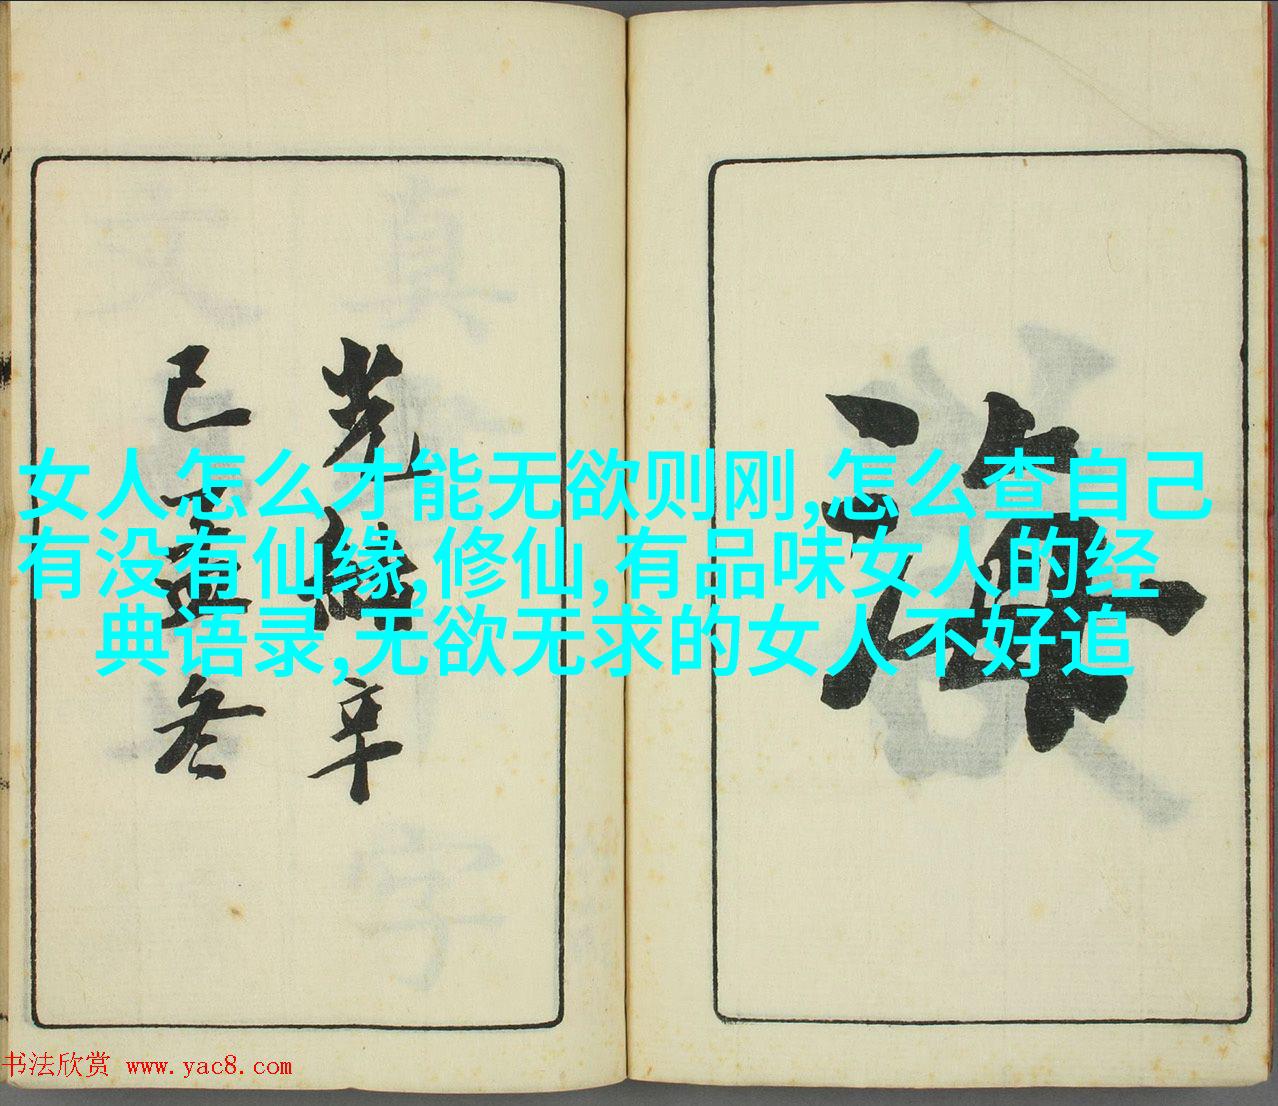 女人怎么才能无欲则刚,怎么查自己
有没有仙缘,修仙,有品味女人的经
典语录,无欲无求的女人不好追
海
光緒辛
巳孟冬
书法欣赏 www.yac8.com